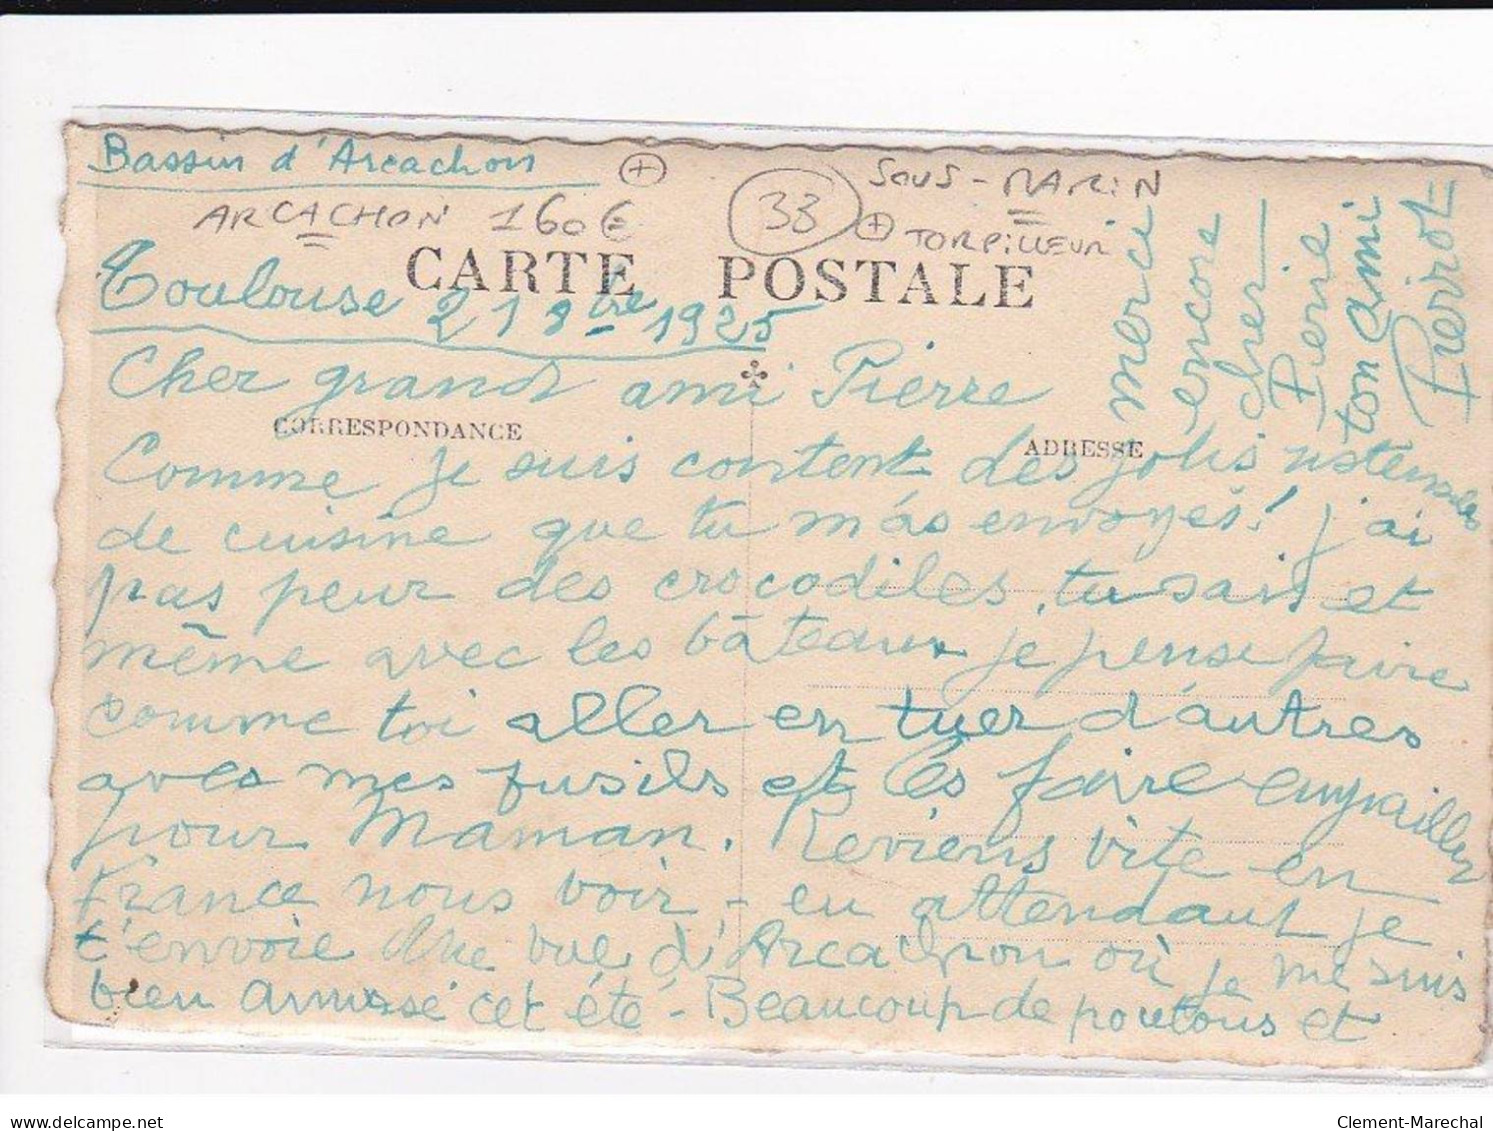 Bassin d'Arcachon
+
ARCACHON 160€
33
SOUS-MARIN
+ TORPILLEUR
CARTE POSTALE
Toulouse 21 8bre 1925
Cher grand ami Pierre
CORRESPONDANCE
ADRESSE
Comme je suis content des jolis ustensiles
de cuisine que tu m'as envoyés! j'ai
pas peur des crocodiles, tu sais et
même avec les bâteaux je pense faire
comme toi aller en tuer d'autres
avec mes fusils et les faire empailler
pour Maman. Reviens vite en
France nous voir - en attendant je
t'envoie une vue d'Arcachon où je me suis
bien amusé cet été - Beaucoup de poutous et
merci
encore
cher
Pierre
ton ami
Pierrot
Clement-Marechal
delcampe.net